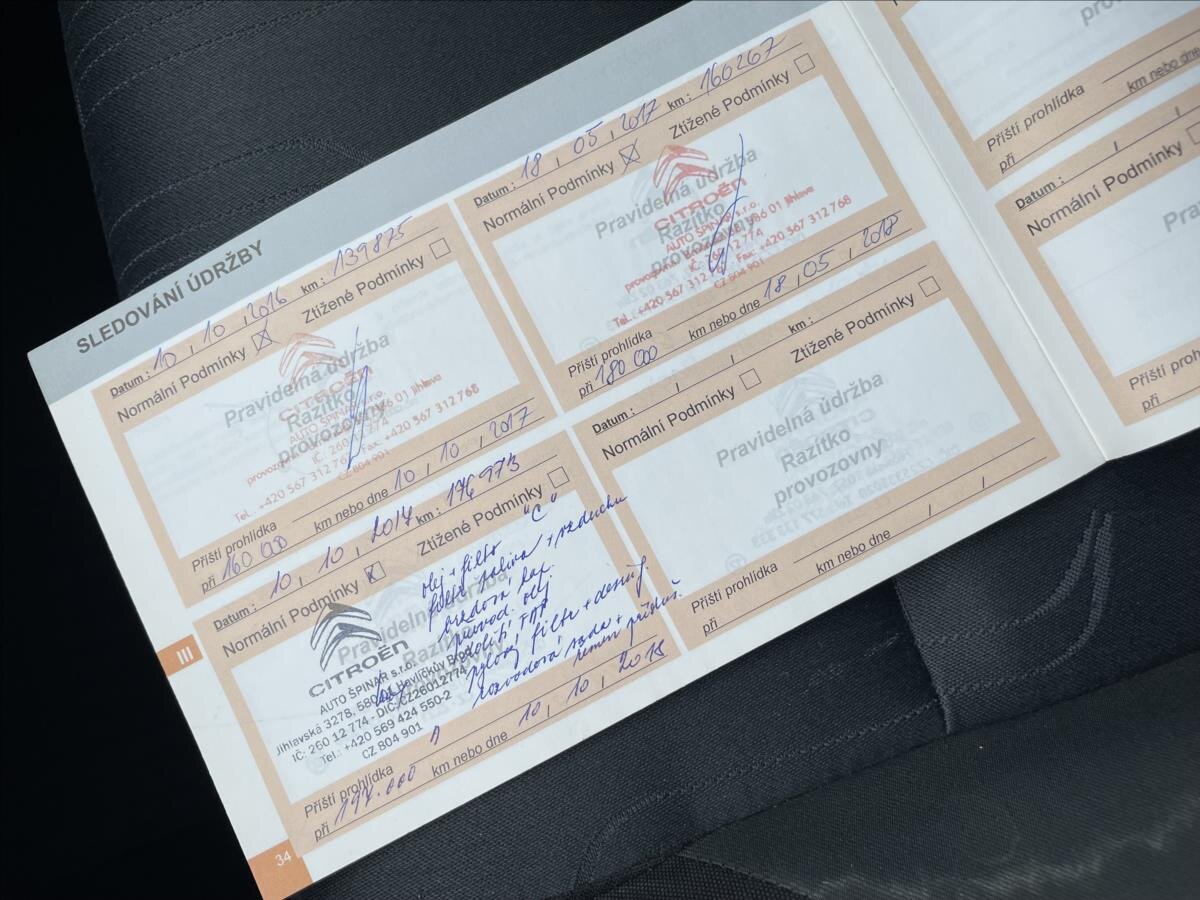 SLEDOVÁNÍ ÚDRŽBY
Datum : 10 , 10 , 2016 km : 139875
Normální Podmínky ☒ Ztížené Podmínky ☐
Pravidelná údržba
Razítko
provozovny
CITROËN
AUTO ŠPINAR s.r.o.
586 01 Jihlava
Tel.: +420 567 312 Fax: +420 567 312 768
CZ 804 901
Příští prohlídka
při 160 000 km nebo dne 10 , 10 , 2017
Datum : 18 , 05 , 2017 km : 160267
Normální Podmínky ☒ Ztížené Podmínky ☐
Pravidelná údržba
Razítko
provozovny
CITROËN
AUTO ŠPINAR s.r.o.
586 01 Jihlava
Tel.: +420 567 312 Fax: +420 567 312 768
CZ 804 901
Příští prohlídka
při 180 000 km nebo dne 18 , 05 , 2018
Datum : 10 , 10 , 2017 km : 176973
Normální Podmínky ☒ Ztížené Podmínky ☐
"C"
olej + filtr
filtr paliva + vzduchu
brzdová kap.
převod. olej
dolití FAP
pylový filtr + desinf.
rozvodová sada +
řemen přísluš.
Pravidelná údržba
Razítko
CITROËN
AUTO ŠPINAR s.r.o.
Jihlavská 3278, 580 01 Havlíčkův Brod
IČ: 260 12 774 - DIČ: CZ26012774
Tel.: +420 569 424 550-2
CZ 804 901
Příští prohlídka
při 197.000 km nebo dne 10 , 10 , 2018
Datum : km :
Normální Podmínky ☐ Ztížené Podmínky ☐
Pravidelná údržba
Razítko
provozovny
Příští prohlídka
při km nebo dne
III
34
Příští prohlídka
při km nebo dne
Datum :
Normální Podmínky
Příští prohlídka
při